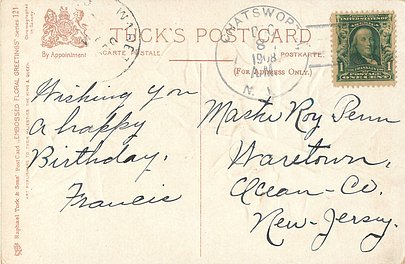 TUCK'S POSTCARD
By Appointment
CARTE POSTALE
POSTKARTE
(FOR ADDRESS ONLY.)
CHATSWORTH
8
1908
N. J.
1
Wishing You
A happy
Birthday.
Francis
Raphael Tuck & Sons' Post Card "EMBOSSED FLORAL GREETINGS" Series 121
Maste Roy Penn
Waretown,
Ocean-Co.
New-Jersey.